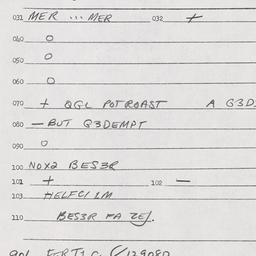 031 MER ... MER 032 +
040 O
050 O
060 O
070 + QGL POT ROAST A G3D
080 — BUT Q3DEMPT
090 O
100 NOX2 BES3R
101 + 102 —
103 HELFCI LM
110 BES3R FA ZEJ.